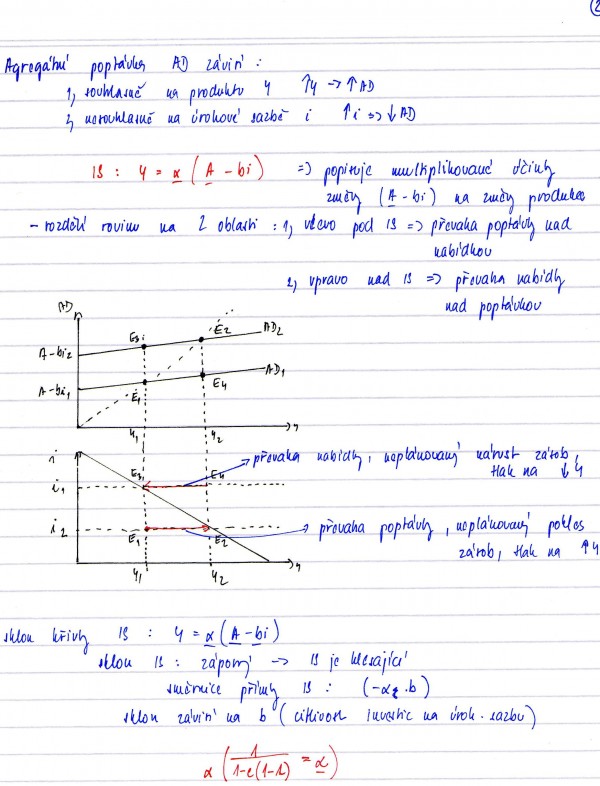 2
Agregátní poptávka AD závisí:
1, souhlasně na produktu Y ↑Y → ↑AD
2, nesouhlasně na úrokové sazbě i ↑i => ↓AD
IS : Y = α (A - bi) => popisuje multiplikované účinky
změny (A - bi) na změny produkce
- rozdělí rovinu na 2 oblasti : 1, vlevo pod IS => převaha poptávky nad
nabídkou
2, vpravo nad IS => převaha nabídky
nad poptávkou
AD
A-bi2 E3 E2 AD2
A-bi1 E1 E4 AD1
Y1 Y2 Y
i
i1 E3 E4 převaha nabídky, neplánovaný nárust zásob,
tlak na ↓Y
i2 E1 E2 převaha poptávky, neplánovaný pokles
zásob, tlak na ↑Y
Y1 Y2 Y
sklon křivky IS : Y = α (A - bi)
sklon IS : záporný → IS je klesající
směrnice přímky IS : (-α . b)
sklon závisí na b (citlivost investic na úrok. sazbu)
α (1/(1-c(1-t)) = α)